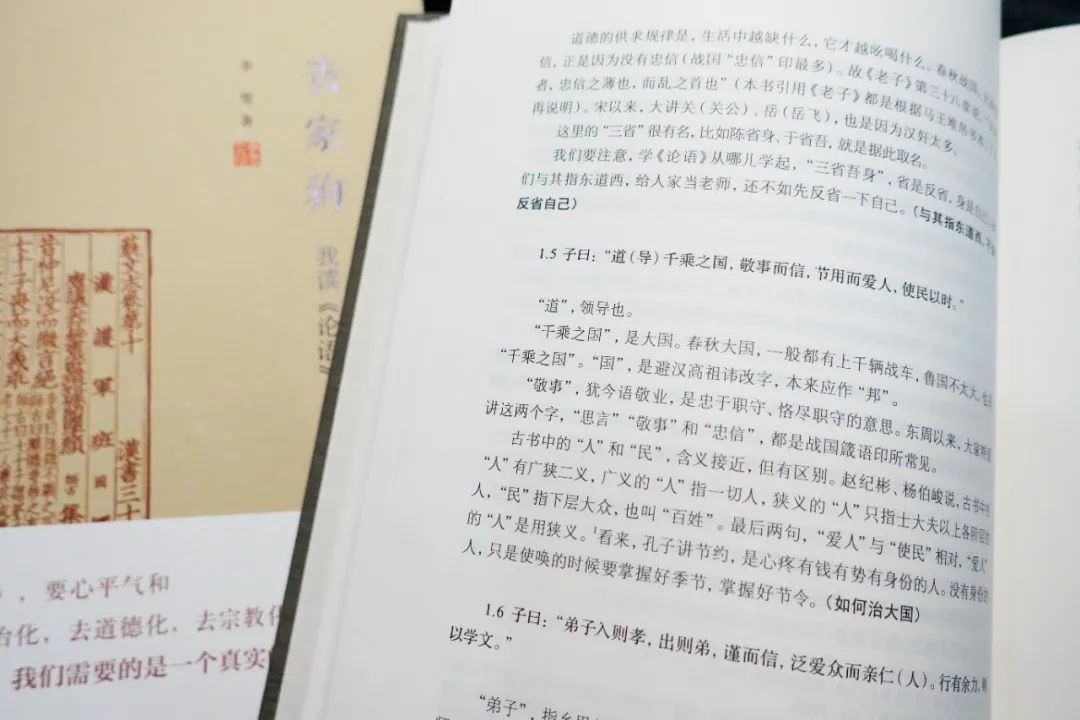 丧家狗
我读《论语》
李零 著
汉书三十
漢護軍班固
藝文志卷第十
昔仲尼没而微言絶
七十子喪而大義乖
，要心平气和
治化，去道德化，去宗教化
我们需要的是一个真实
道德的供求规律是，生活中越缺什么，它才越吆喝什么。春秋战国，
信，正是因为没有忠信（战国“忠信”印最多）。故《老子》第三十八章说，
者，忠信之薄也，而乱之首也”（本书引用《老子》都是根据马王堆帛书本，
再说明）。宋以来，大讲关（关公）、岳（岳飞），也是因为汉奸太多。
这里的“三省”很有名，比如陈省身、于省吾，就是据此取名。
我们要注意，学《论语》从哪儿学起，“三省吾身”，省是反省，身是自己
们与其指东道西，给人家当老师，还不如先反省一下自己。（与其指东道西，
反省自己）
1.5 子曰：“道（导）千乘之国，敬事而信，节用而爱人，使民以时。”
“道”，领导也。
“千乘之国”，是大国。春秋大国，一般都有上千辆战车，鲁国不太大，也
“千乘之国”。“国”，是避汉高祖讳改字，本来应作“邦”。
“敬事”，犹今语敬业，是忠于职守、恪尽职守的意思。东周以来，大家特
讲这两个字，“思言”“敬事”和“忠信”，都是战国箴语印所常见。
古书中的“人”和“民”，含义接近，但有区别。赵纪彬、杨伯峻说，古书中的
“人”有广狭二义，广义的“人”指一切人，狭义的“人”只指士大夫以上各阶层的
人，“民”指下层大众，也叫“百姓”。最后两句，“爱人”与“使民”相对，“爱人”
的“人”是用狭义。1看来，孔子讲节约，是心疼有钱有势有身份的人。没有身份的
人，只是使唤的时候要掌握好季节，掌握好节令。（如何治大国）
1.6 子曰：“弟子入则孝，出则弟，谨而信，泛爱众而亲仁（人）。行有余力，则
以学文。”
“弟子”，指